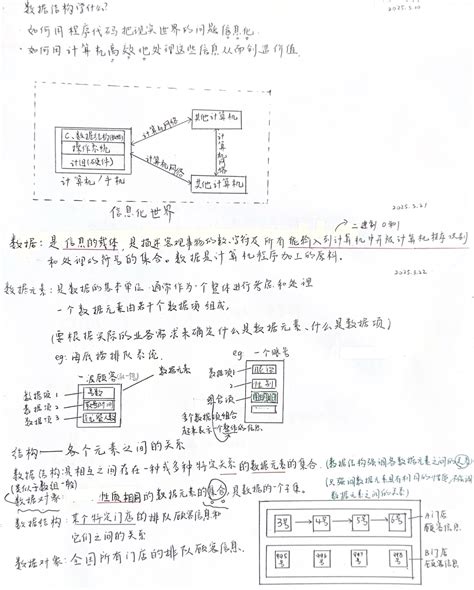 数据结构学什么?
2025.3.20
·如何用程序代码把现实世界的问题信息化
·如何用计算机高效地处理这些信息从而创造价值
C、数据结构
操作系统
计组(硬件)
计算机/手机
计算机网络
其他计算机
计算机网络
计算机网络
其他计算机
信息化世界
2025.3.21
二进制0和1
数据:是信息的载体,是描述客观事物的数、字符及所有能输入到计算机中并被计算机程序识别
和处理的符号的集合。数据是计算机程序加工的原料。
2025.3.22
数据元素:是数据的基本单位,通常作为一个整体进行考虑和处理
一个数据元素由若干个数据项组成,
(要根据实际的业务需求来确定什么是数据元素、什么是数据项)
eg:海底捞排队系统
一波顾客
数据元素
数据项1
号数
数据项2
取号时间
数据项3
就餐人数
eg 一个账号
数据项1
昵称
2
性别
组合项
多个数据项组合
起来表示个整体的信息
结构——各个元素之间的关系
数据结构:是相互之间存在一种或多种特定关系的数据元素的集合.
(数据结构强调各数据元素之间的关系)
数据对象:性质相同的数据元素的集合,是数据的一个子集。
数据结构:某个特定门店的排队顾客信息和
它们之间的关系
数据对象:全国所有门店的排队顾客信息、
3号
4号
5号
6号
A门店
顾客信息
B门店
顾客信息